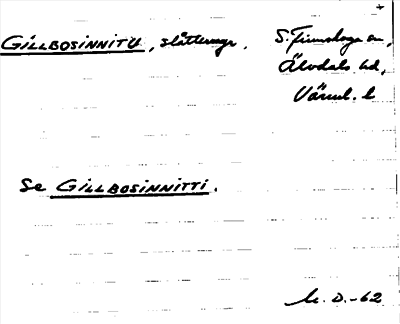 +
GILLBOSINNITU, slåttermyr, S. Finnskoga sn,
Älvdals hd,
Värml. l
Se GILLBOSINNITTI.
M. D. -62